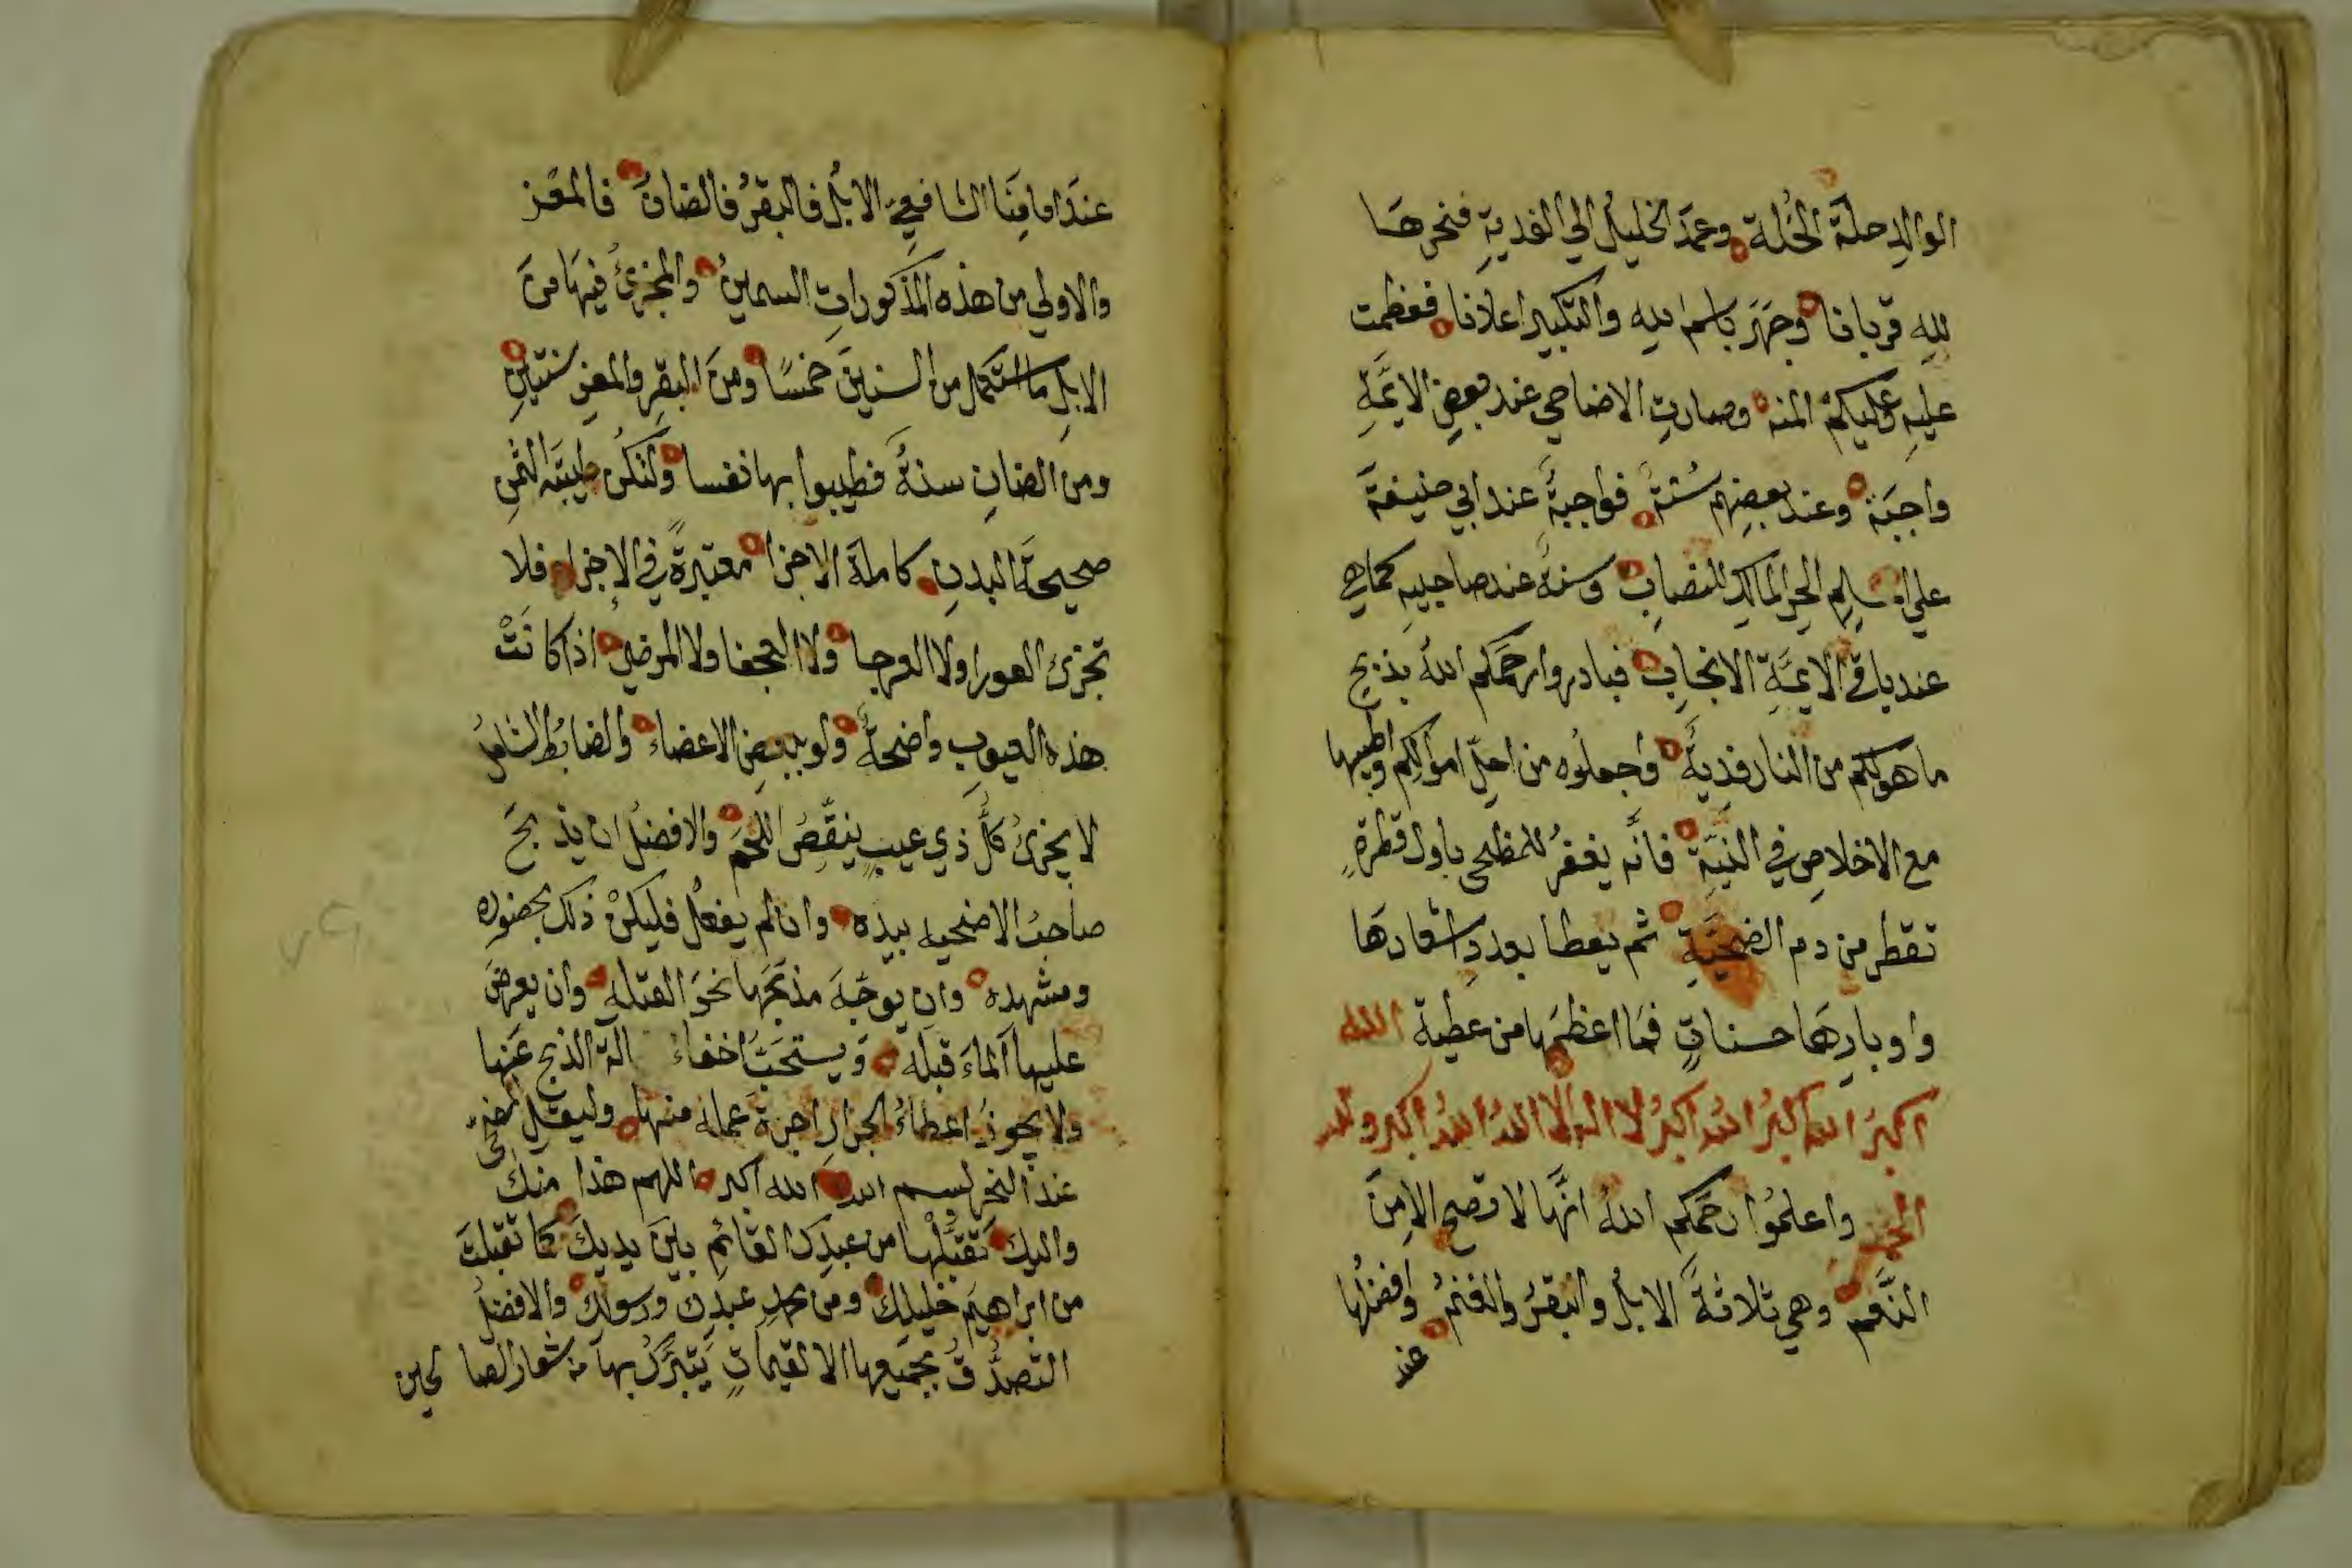 الوالدِ حلةَ الخُلة وعمَدَ الخليلُ الي الفديةِ فنحرها
للهِ قربانا وجهَرَ باسمِ اللهِ والتكبيرِ اعلانا فعظمت
عليهِ وعليكمُ المنه وصارتِ الاضاحي عند بعضِ الايمَّةِ
واجبَة وعند بعضِهم سُنةً فواجبةٌ عند ابي حنيفةَ
علي المسلِمِ الحرِ المالكِ للنصابِ وسنةٌ عند صاحبيهِ كما هي
عند باقي الايمَّةِ الانجابِ فبادروا رحمَكم اللهُ بذبحِ
ما هو لكم من النار فديةً واجعلُوه من احلِّ اموالِكم واطيبها
مع الاخلاصِ في النيَّةِ فانَّه يغفرُ للمظحي باول قطرةٍ
تقطر من دم الضحيَّةِ ثم يعطا بعدد اشعارهَا
واوبارِهَا حسناتٍ فمَا اعظمَها من عطية الله
اكبرُ اللهُ اكبرُ اللهُ اكبرُ لا اله الا اللهُ اللهُ اكبر ولله
الحمد واعلمُوا رحمَكم اللهُ انَّها لا تصح الا مِنَ
النَّعمِ وهي ثلاثةٌ الابلُ والبقرُ والغنمُ وافضلُها
عند
عندَ امامِنَا الشافعيِ الابلُ فالبقرُ فالضانُ فالمعَز
والاولي من هذه المَذكوراتِ السمينُ والمجزئُ فيهَا منَ
الابلِ ما استكمل من السنينَ خمسًا ومنَ البقرِ والمعزِ سنتينِ
ومن الضانِ سنةً فطيبوا بها نفسا ولتكُن طيبَّةَ الثمنِ
صحيحةَ البدنِ كاملةَ الاجزا معتبرةً في الاِجزا فلا
تجزئ العورا ولا العرجا ولا العجفا ولا المرضي اذا كانَتْ
هذه العيوب واضحةً ولو ببعضِ الاعضاء والضابُط الشاملُ
لا يجزئُ كلُّ ذي عيبٍ ينقّصُ اللحمَ والافضلُ ان يذبحَ
صاحبُ الاضحيه بيده وان لم يفعلْ فليكنْ ذلك بحضوره
ومشهدِه وان يوجّهَ مذبحَها نحوَ القبلهِ وان يعرضَ
عليها الماءَ قبله ويستحَبُّ اخفاء الة الذبح عَنها
ولا يجوزُ اعطاءُ الجزارِ اجرةَ عمله منها وليقلِ المضحّي
عند النحرِ بسم الله والله اكبر اللهم هذا منكَ
واليكَ تقبَّلْها من عبدِكَ القائمِ بينَ يديكَ كما تقبلتَ
من ابراهيمَ خليلِكَ ومن محمدٍ عبدِكَ ورسولِكَ والافضلُ
التصدُّقُ بجميعِها الا لقيماتٍ يَتبرَّكُ بها من شعار الصالحين